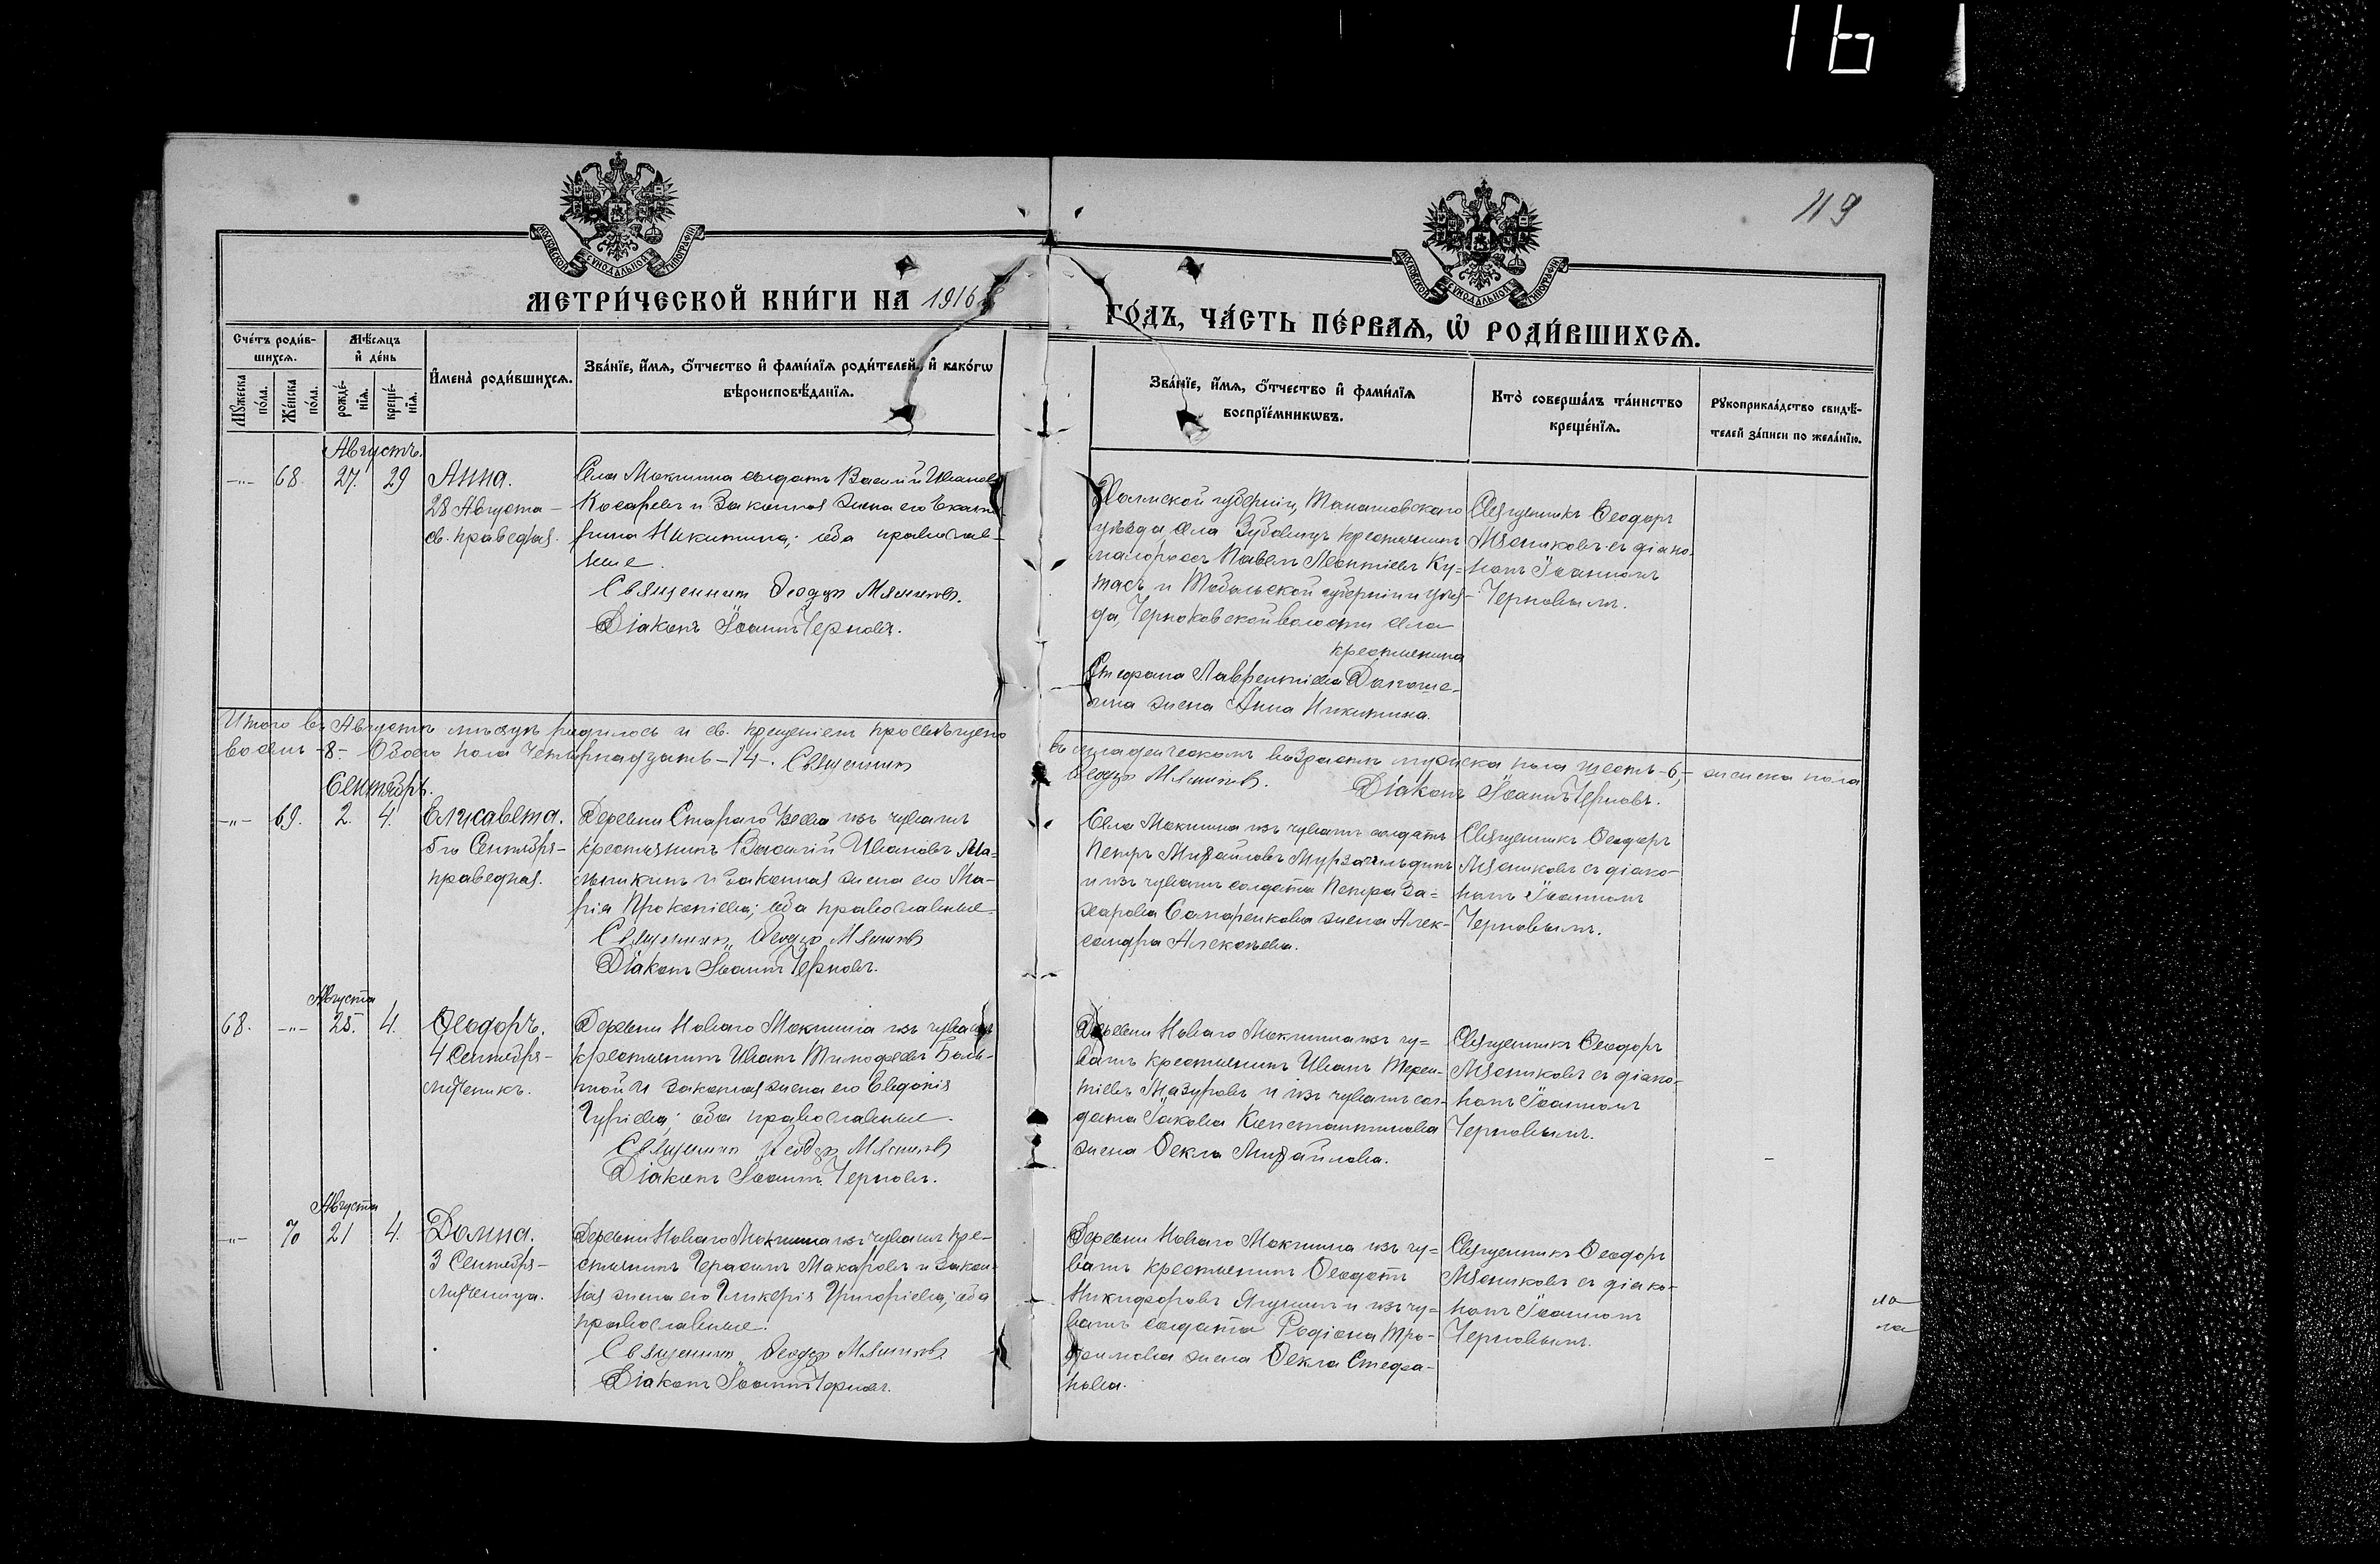 16
119
МОСКОВСКОЙ СѴНОДАЛЬНОЙ ТИПОГРАФІИ
МОСКОВСКОЙ СѴНОДАЛЬНОЙ ТИПОГРАФІИ
МЕТРИ́ЧЕСКОЙ КНИ́ГИ НА 1916
ГО́ДЪ, ЧА́СТЬ ПЕ́РВАѦ, Ѡ҆ РОДИ́ВШИХСѦ.
Сче́тъ роди́в-
шихсѧ.
Мѣ́сѧцъ
и҆ де́нь
Мꙋ́жеска
по́ла.
Же́нска
по́ла.
рожде́-
нїѧ.
креще́-
нїѧ.
И҆мена̀ роди́вшихсѧ.
Зва́нїе, и҆́мѧ, ѻ҆́тчество и҆ фами́лїѧ роди́телей, и҆ како́гѡ
вѣроисповѣ́данїѧ.
Зва́нїе, и҆́мѧ, ѻ҆́тчество и҆ фами́лїѧ
воспрїе́мникѡвъ.
Кто̀ соверша́лъ та́инство
креще́нїѧ.
Рꙋкоприкла́дство свидѣ́-
телей за́писи по жела́нїю.
Августъ.
-"- 68. 27. 29 Анна.
28 Августа -
св. праведная.
Села Мокшина солдатъ Василій Ивановъ
Косаревъ и законная жена его Екате-
рина Никитина; оба православ-
ные.
Священникъ Ѳеодоръ Мясниковъ.
Діаконъ Іоаннъ Черновъ.
Холмской губерніи, Томашовскаго
уѣзда, села Зубовицъ крестьянинъ
малороссъ Павелъ Леонтіевъ Ку-
тасъ и Тобольской губерніи и уѣз-
да, Черноковской волости села
крестьянина
Стефана Лаврентіева
жена Анна Никитина.
Священникъ Ѳеодоръ
Мясниковъ съ діако-
номъ Іоанномъ
Черновымъ.
Итого въ Августѣ мѣсяцѣ родилось и св. крещеніемъ просвѣщено
въ младенческомъ возрастѣ мужеска пола шесть -6,- женска пола
восемь -8-. Обоего пола четырнадцать -14-. Священникъ
Ѳеодоръ Мясниковъ. Діаконъ Іоаннъ Черновъ.
Сентябрь.
-"- 69. 2. 4. Елисавета.
5го Сентября -
праведная.
Деревни Стараго Узеева изъ чувашъ
крестьянинъ Василій Ивановъ Ма-
и законная жена его Ма-
рія Прокопіева; оба православные.
Священникъ Ѳеодоръ Мясниковъ
Діаконъ Іоаннъ Черновъ.
Села Мокшина изъ чувашъ солдатъ
Петръ Михайловъ
и изъ чувашъ солдата Петра За-
харова жена Алек-
сандра Алексѣева.
Священникъ Ѳеодоръ
Мясниковъ съ діако-
номъ Іоанномъ
Черновымъ.
Августа
68. -"- 25. 4. Ѳеодоръ.
4 Сентября -
мученикъ.
Деревни Новаго Мокшина изъ чувашъ
крестьянинъ Иванъ Тимофеевъ Боль-
шой и законная жена его Евдокія
Гуріева; оба православные.
Священникъ Ѳеодоръ Мясниковъ
Діаконъ Іоаннъ Черновъ.
Деревни Новаго Мокшина изъ чу-
вашъ крестьянинъ Иванъ Терен-
тіевъ Мазуровъ и изъ чувашъ сол-
дата Іакова Константинова
жена Ѳекла Михайлова.
Священникъ Ѳеодоръ
Мясниковъ съ діако-
номъ Іоанномъ
Черновымъ.
Августа
-"- 70 21 4. Домна.
3 Сентября -
мученица.
Деревни Новаго Мокшина изъ чувашъ кре-
стьянинъ Герасимъ Макаровъ и закон-
ная жена его Гликерія Григоріева; оба
православные.
Священникъ Ѳеодоръ Мясниковъ
Діаконъ Іоаннъ Черновъ.
Деревни Новаго Мокшина изъ чу-
вашъ крестьянинъ Ѳеодотъ
Никифоровъ и изъ чу-
вашъ солдата Родіона Тро-
фимова жена Ѳекла Стефа-
нова.
Священникъ Ѳеодоръ
Мясниковъ съ діако-
номъ Іоанномъ
Черновымъ.
ла
ла